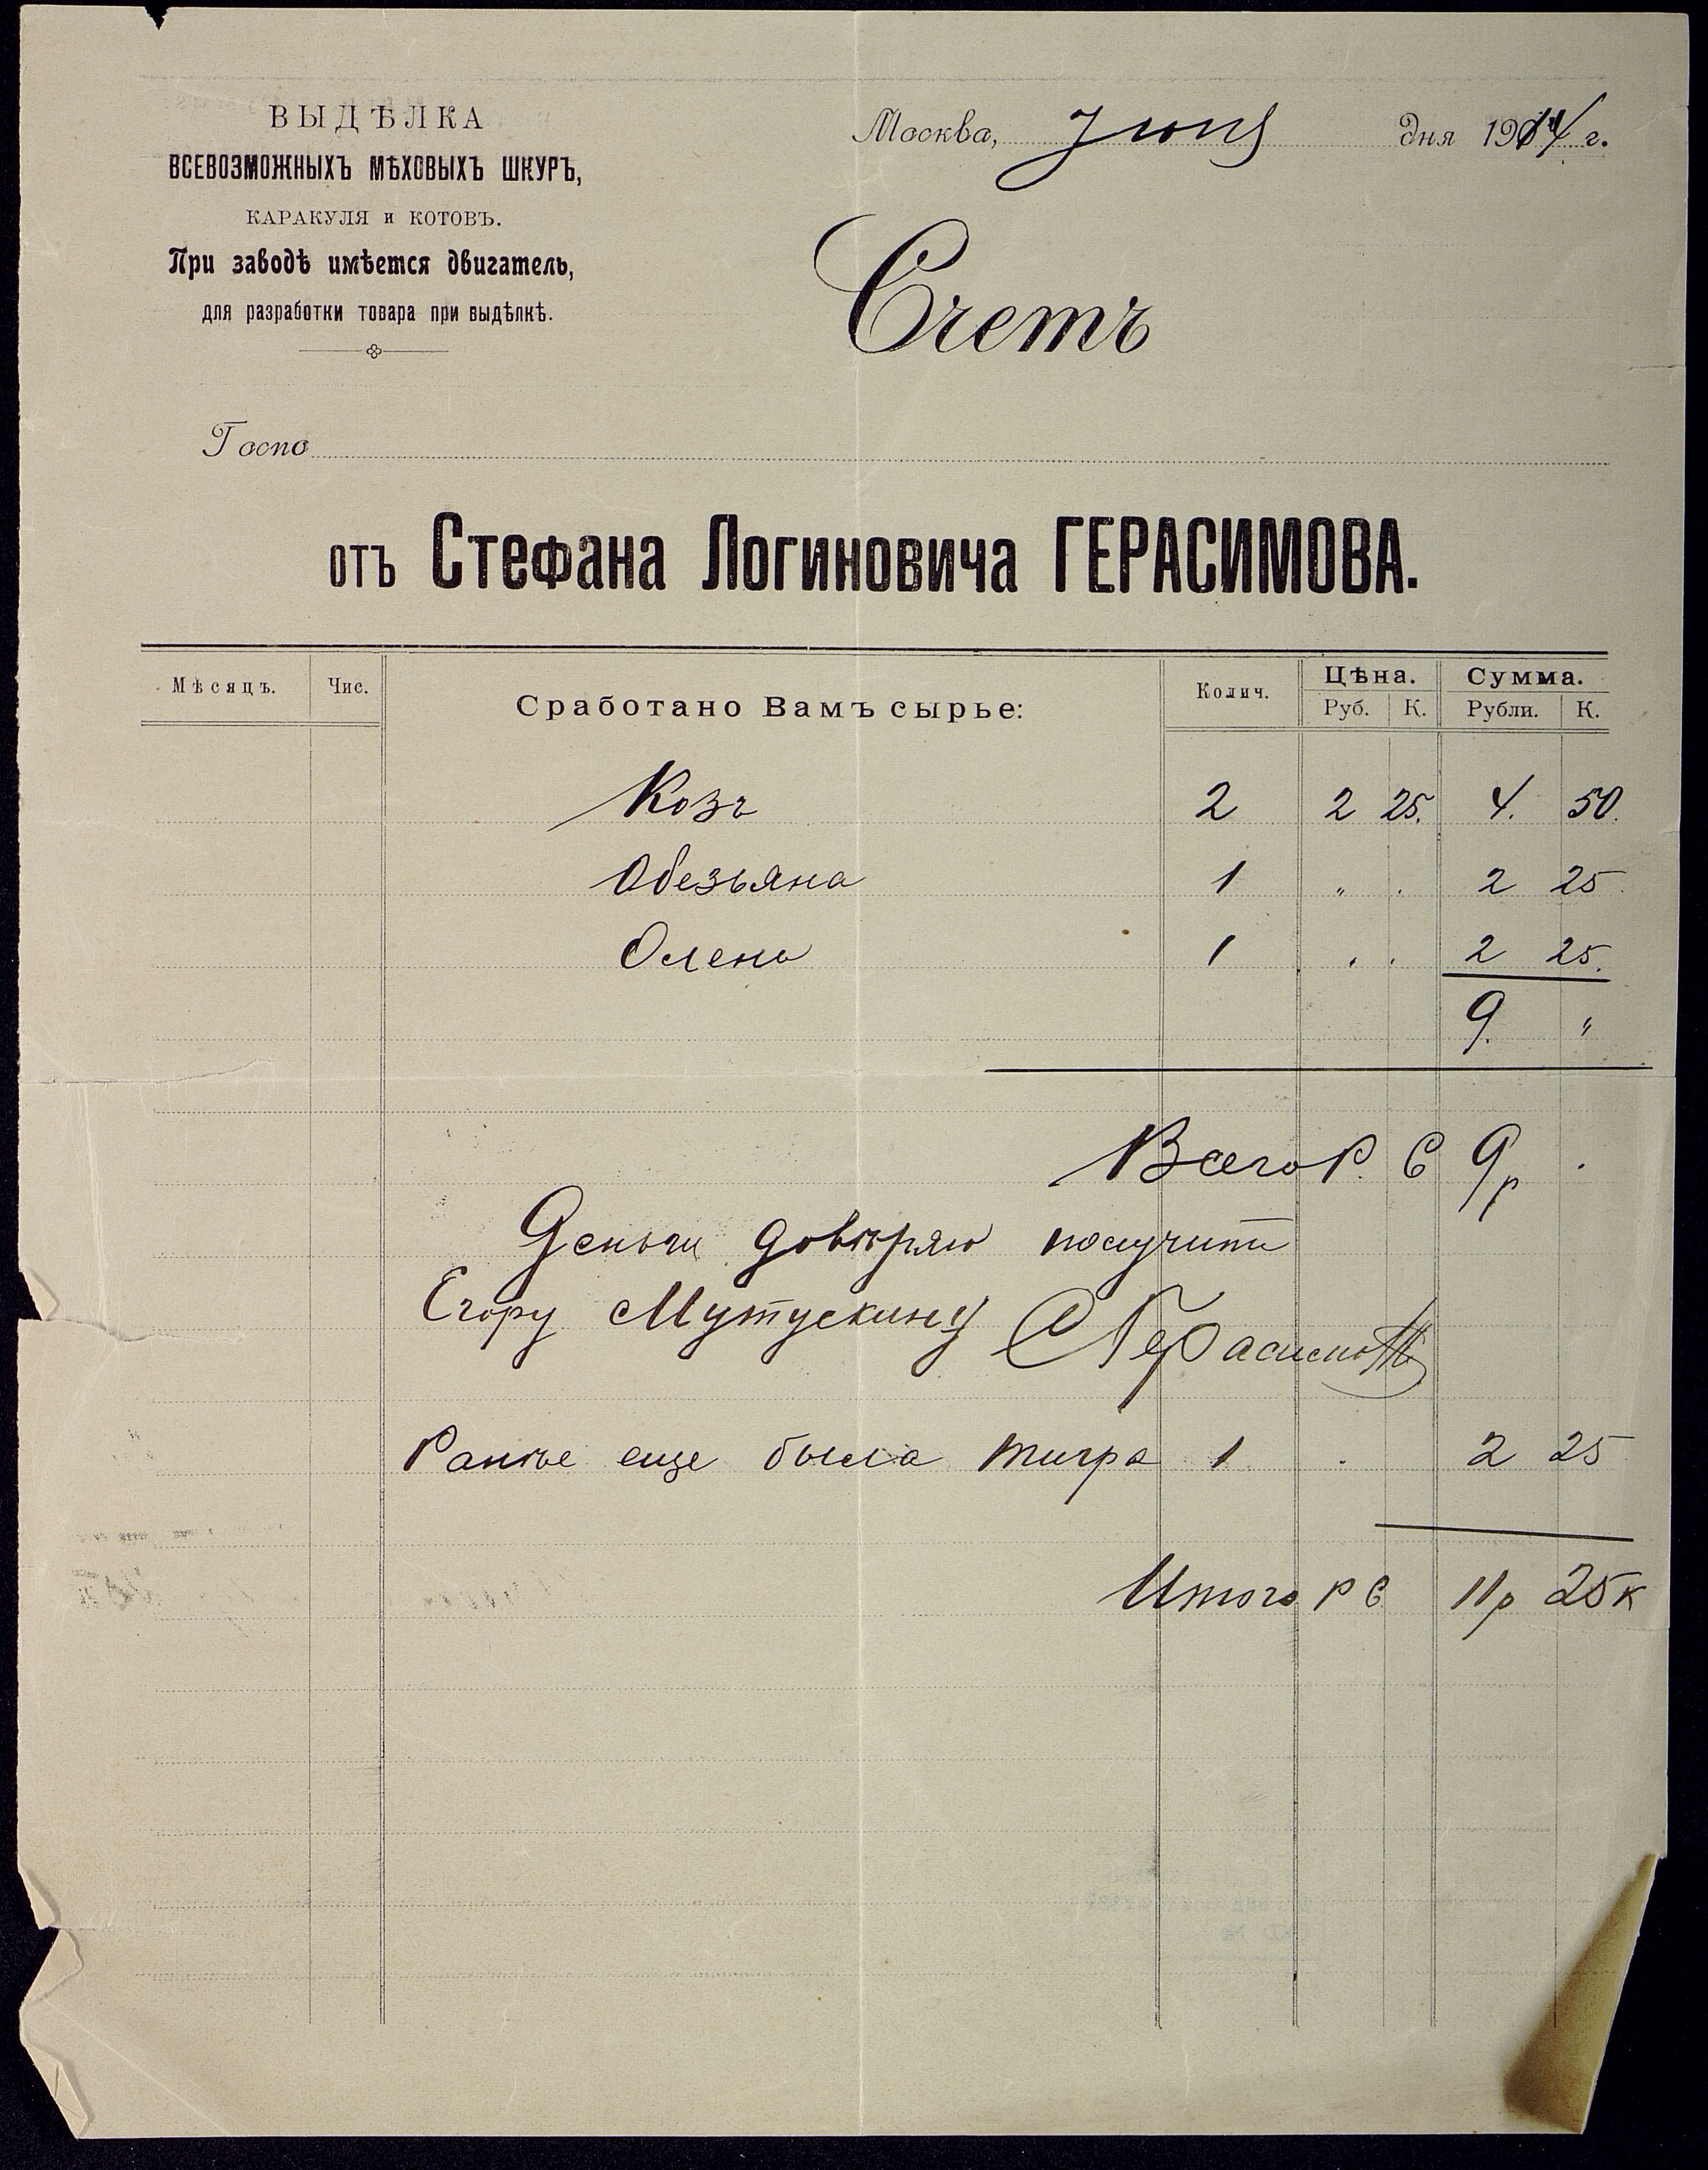 ВЫДѢЛКА
ВСЕВОЗМОЖНЫХЪ МѢХОВЫХЪ ШКУРЪ,
КАРАКУЛЯ и КОТОВЪ.
При заводѣ имѣется двигатель,
для разработки товара при выдѣлкѣ.
Москва, Июня дня 1914 г.
Счетъ
Госпо
отъ Стефана Логиновича ГЕРАСИМОВА.
Мѣсяцъ. Чис. Сработано Вамъ сырье: Колич. Цѣна. Сумма.
Руб. К. Рубли. К.
Козъ 2 2 25. 4. 50.
Обезьяна 1 " . 2 25.
Олень 1 . . 2 25.
9. "
Всего Р. С 9р .
Деньги довѣряю получить
Егору Мутускину С Герасимовъ
Ранѣе еще была тигра 1 . 2 25
Итого Р С 11р 25к